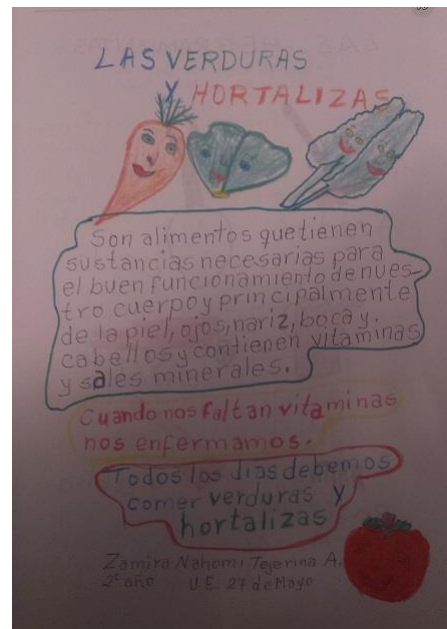 LAS VERDURAS
Y HORTALIZAS
Son alimentos que tienen
sustancias necesarias para
el buen funcionamiento de nues-
tro cuerpo y principalmente
de la piel, ojos, nariz, boca y.
cabellos y contienen vitaminas
y sales minerales.
Cuando nos faltan vitaminas
nos enfermamos.
Todos los dias debemos
comer verduras y
hortalizas
Zamira Nahomi Tejerina A.
2º año U.E. 27 de Mayo